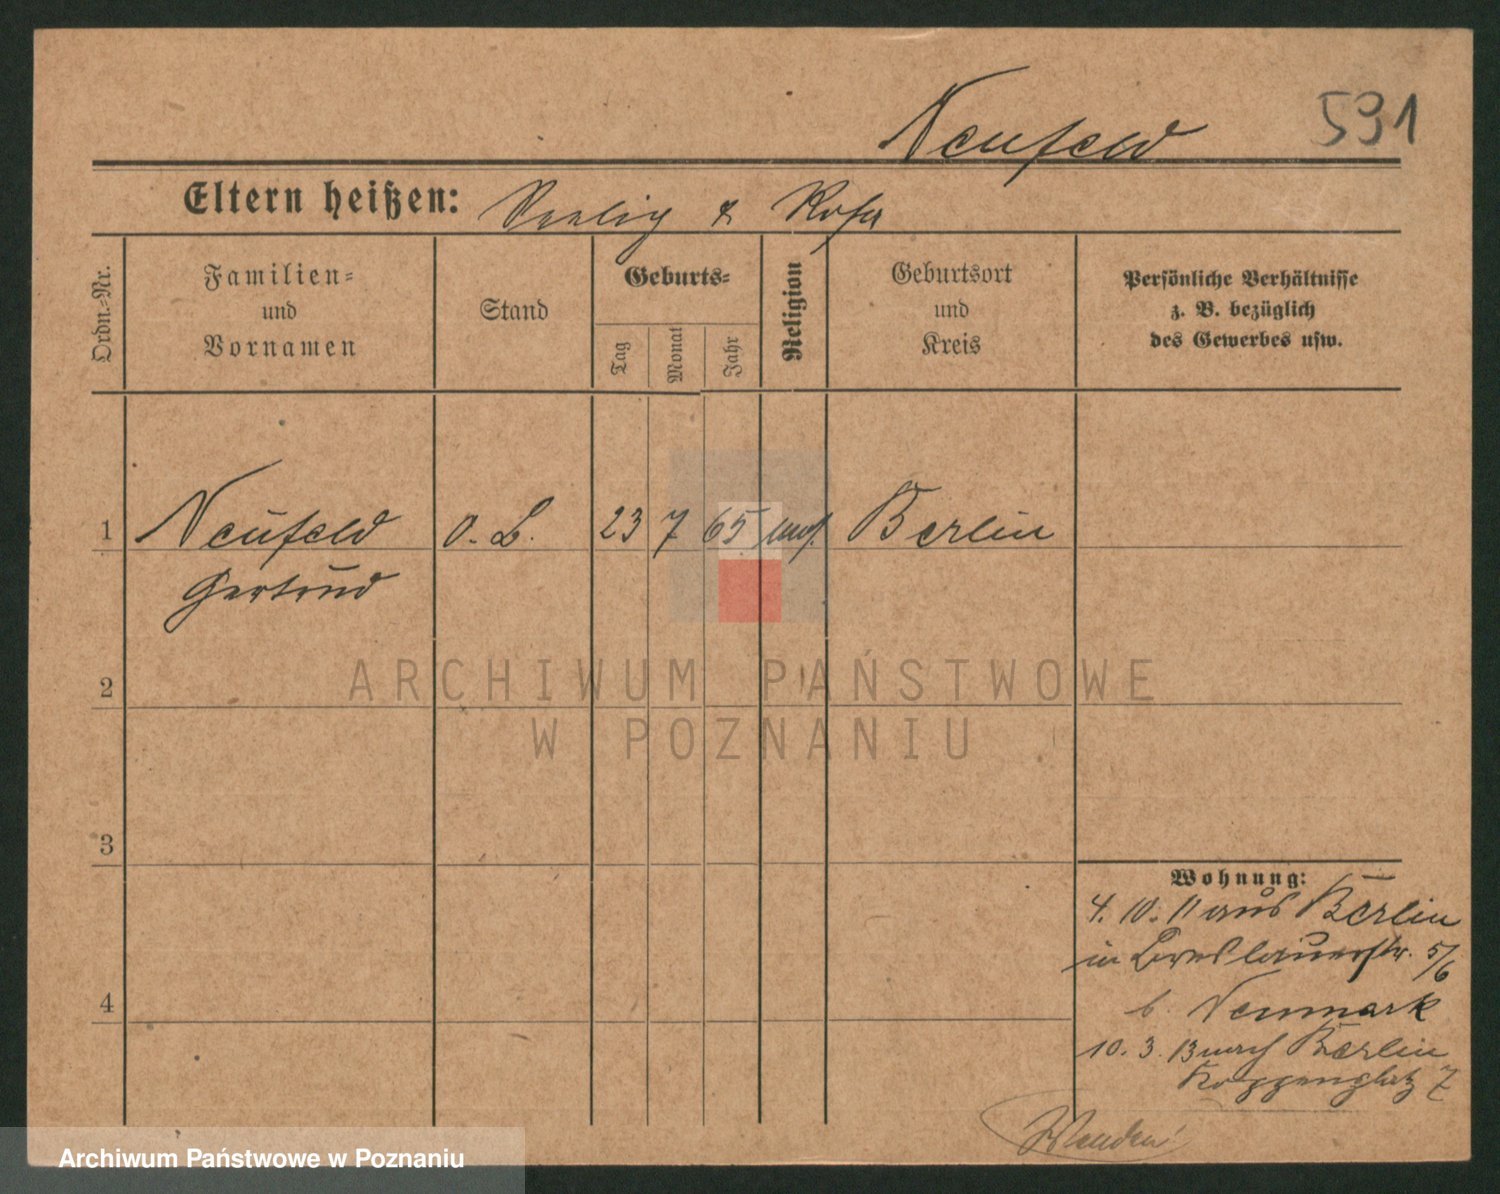 591
Neufeld
Eltern heißen: Seelig & Rosa
Ordn.-Nr.
Familien-
und
Vornamen
Stand
Geburts-
Tag
Monat
Jahr
Religion
Geburtsort
und
Kreis
Persönliche Verhältnisse
z. B. bezüglich
des Gewerbes usw.
1 Neufeld o. B. 23 7 65 mos. Berlin
Gertrud
ARCHIWUM PAŃSTWOWE
2
W POZNANIU
3
Wohnung:
4. 10. 11 aus Berlin
in Breslauerstr. 5/6
b. Neumark
4
10. 3. 13 nach Berlin
Koppenplatz 7
Archiwum Państwowe w Poznaniu